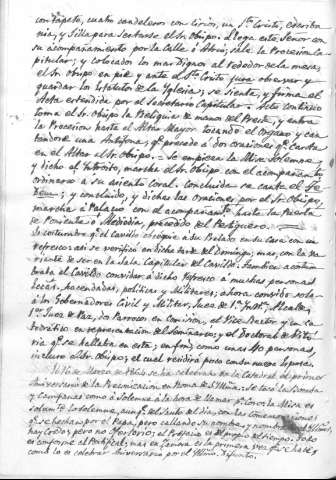 con tapete, cuatro candeleros con cirios, un S.to Cristo, escriba-
nia, y silla para sentarse el Sr. Obispo: llega este Señor con
su acompañamiento por la Calle ó Atrio; sale la Procesion Ca-
pitular; y colocados los mas Dignos al rededor de la mesa,
el Sr. Obispo en pie y ante el S.to Cristo jura observar y
guardar los Estatutos de la Iglesia; se sienta, y firma el
Acta estendida por el Secretario Capitular. Acto continuo
toma el Sr. Obispo la Reliquia de manos del Preste, y entra
la Procesion hasta el Altar Mayor tocando el Organo y can-
tandose una Antifona, q.e precede á dos oraciones q.e canta
en el Altar el Sr. Obispo. = Se empieza la Misa Solemne,
y dicho el Introito, marcha el Sr. Obispo con el acompañam.to
ordinario á su asiento coral. Concluida se canta el Te
Deum; y concluido, y dichas las oraciones por el Sr. Obispo,
marcha á Palacio con el acompañam.to hasta la puerta
de Poniente ó Mediodia, precedido del Pertiguero.
Es costumbre q.e el Cavildo obsequie á su Prelado en su Casa con un
refresco: asi se verificó en dicha tarde del Domingo; mas, con la va-
riante de ser en la Sala Capitular del Cavildo. Tambien acostum-
braba el Cavildo convidar á dicho Refresco á muchas personas
Ecca.s, hacendadas, politicas y Militares; ahora convidó solo
á los Gobernadores Civil y Militar, Juez de 1.a Inst.a, Alcalde,
1.er Juez de Paz, dos Parrocos en Comision, el Vice-Rector y un Ca-
tedratico en representacion del Seminario; y el Doctoral de Vito-
ria q.e se hallaba en esta; en fin, como unas 40 personas,
incluso el Sr. Obispo; el cual residirá poco en su nueva Esposa.
de Marzo se ha celebrado en la Catedral el primer
Aniversario de la
y Campanas como á Solemne á la hora de La Misa es
Solemne, aunq.e del Santo del dia, con las conmemoraciones
q.e se hacian por el Papa, pero callando su nombre y
hay Credo; pero no Ofertorio; el Prefacio es el propio del tiempo. Todo
es conforme al Pontifical; mas en la primera vez se hace,
como la es celebrar Aniversario por el Ultimo difunto.